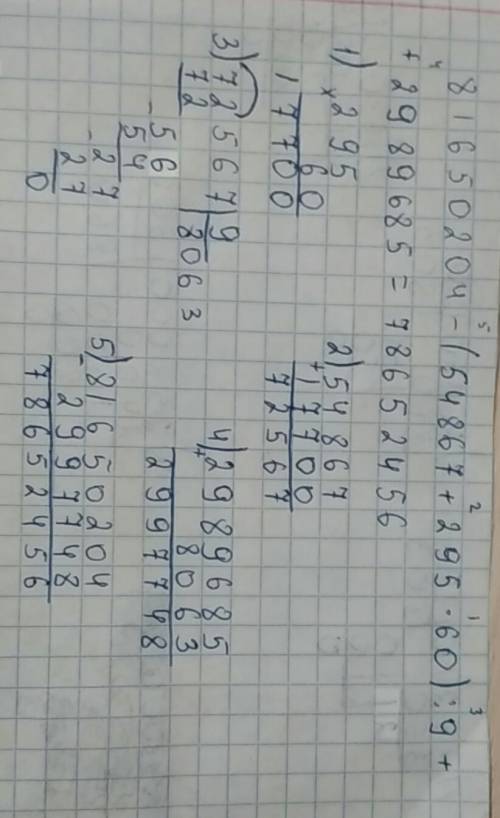 81650204 - (54867 + 295 · 60) : 9 +
+ 2989685 = 78652456
1) × 295
60
17700
2) 54867
+ 17700
72567
3) 72567 | 9
72 | 8063
- 56
54
- 27
27
0
4) 2989685
+ 8063
2997748
5) 81650204
- 2997748
78652456